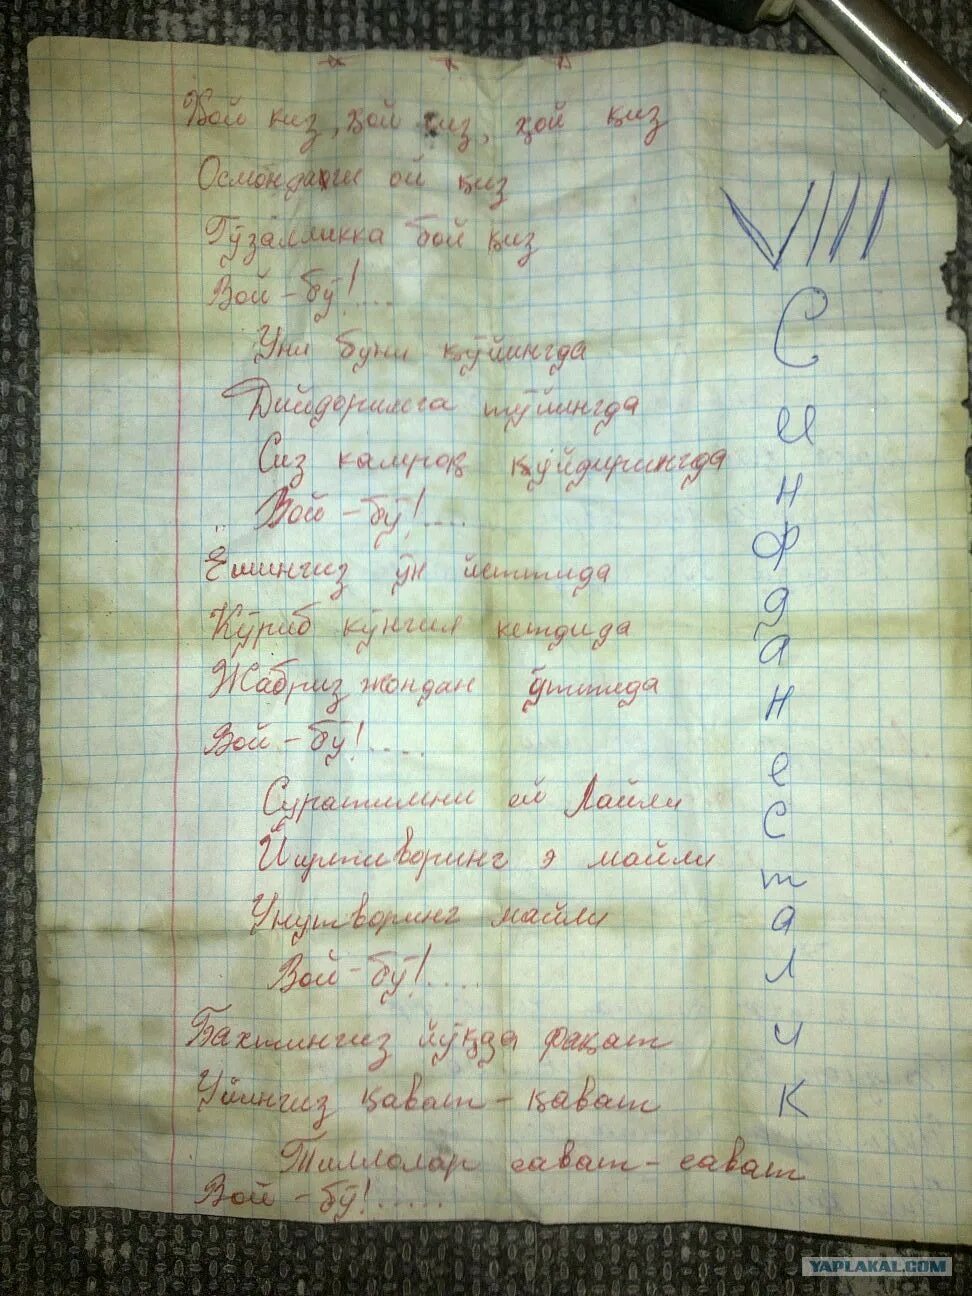 Ҳой қиз, ҳой қиз, ҳой қиз
Осмондаги ой қиз
Гўзалликка бой қиз
Вой-бў!....
Уни буни қўйингда
Дийдоримга тўйингда
Сиз камроқ куйдирингда
Вой-бў!....
Ёшингиз ўн еттида
Кўриб кўнгил кетдида
Жабриз жондан ўттида
Вой-бў!....
Суратимни ей Лайли
Йиртворинг э майли
Унутворинг майли
Вой-бў!....
Бахтингиз йўқда фақат
Уйингиз қават-қават
Тиллолар сават-сават
Вой-бў!.....
VIII
Синфдан есталик
YAPLAKAL.COM